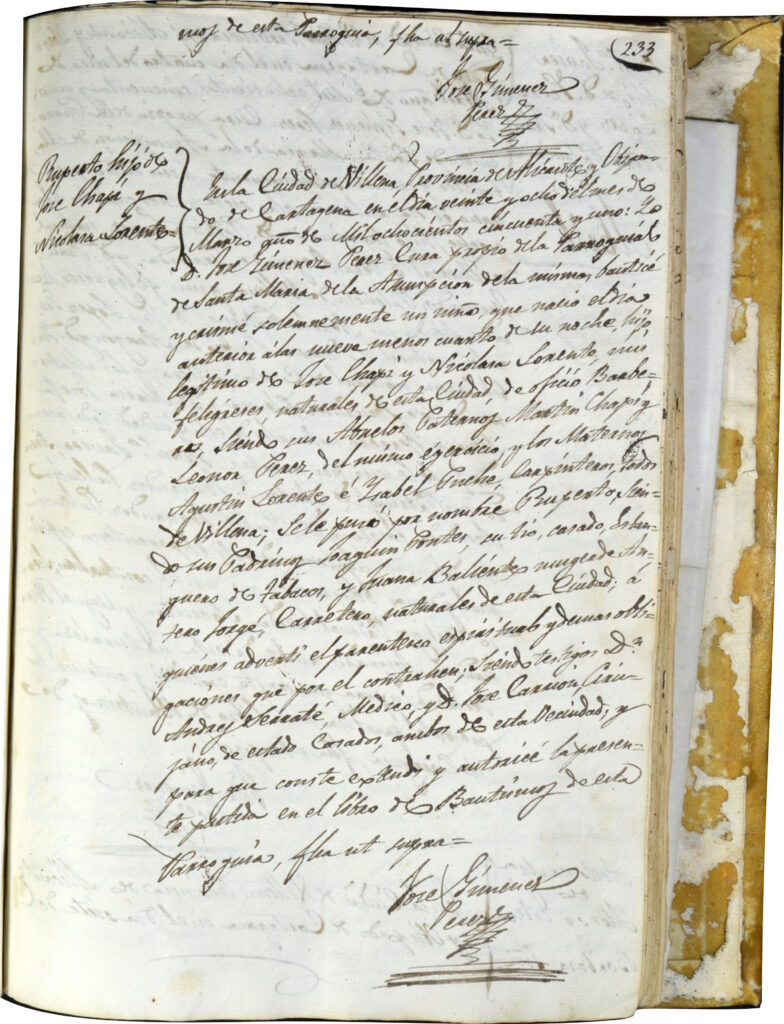 mos de esta Parroquia, fha ut supra=
233
Jose Gimenez
Perez
Ruperto hijo de
Jose Chapi y
Nicolasa Lorente=
En la Ciudad de Villena Provincia de Alicante y Obispa-
do de Cartagena en el dia veinte y ocho del mes de
Marzo año de Mil ochocientos cincuenta y uno: Yo
D. Jose Gimenez Perez Cura propio de la Parroquial
de Santa Maria de la Asunpcion de la misma, Bauticé
y crismé solemnemente un niño, que nació el dia
anterior á las nueve menos cuarto de su noche, hijo
legitimo de Jose Chapi y Nicolasa Lorente, mis
feligreses, naturales de esta Ciudad, de oficio Barbe-
ro, siendo sus Abuelos Paternos Martin Chapi y
Leonor Perez, del mismo egercicio, y los Maternos
Agustin Lorente é Ysabel Puche, Carpinteros, todos
de Villena; Se le puso por nombre Ruperto, sien-
do sus Padrinos Joaquin Fontes, su tio, casado, Estan-
quero de tabacos, y Juana Baliente muger de An-
tero Jorge, Carretero, naturales de esta Ciudad, á
quienes adverti el parentesco espiritual y demas obli-
gaciones que por el contrahen, siendo testigos D.n
Andres Serraté, Medico, y D. Jose Carrion Ciru-
jano, de estado Casados, ambos de esta Vecindad; y
para que conste extendi y autoricé la presen-
te partida en el libro de Bautismos de esta
Parroquia, fha ut supra=
Jose Gimenez
Perez